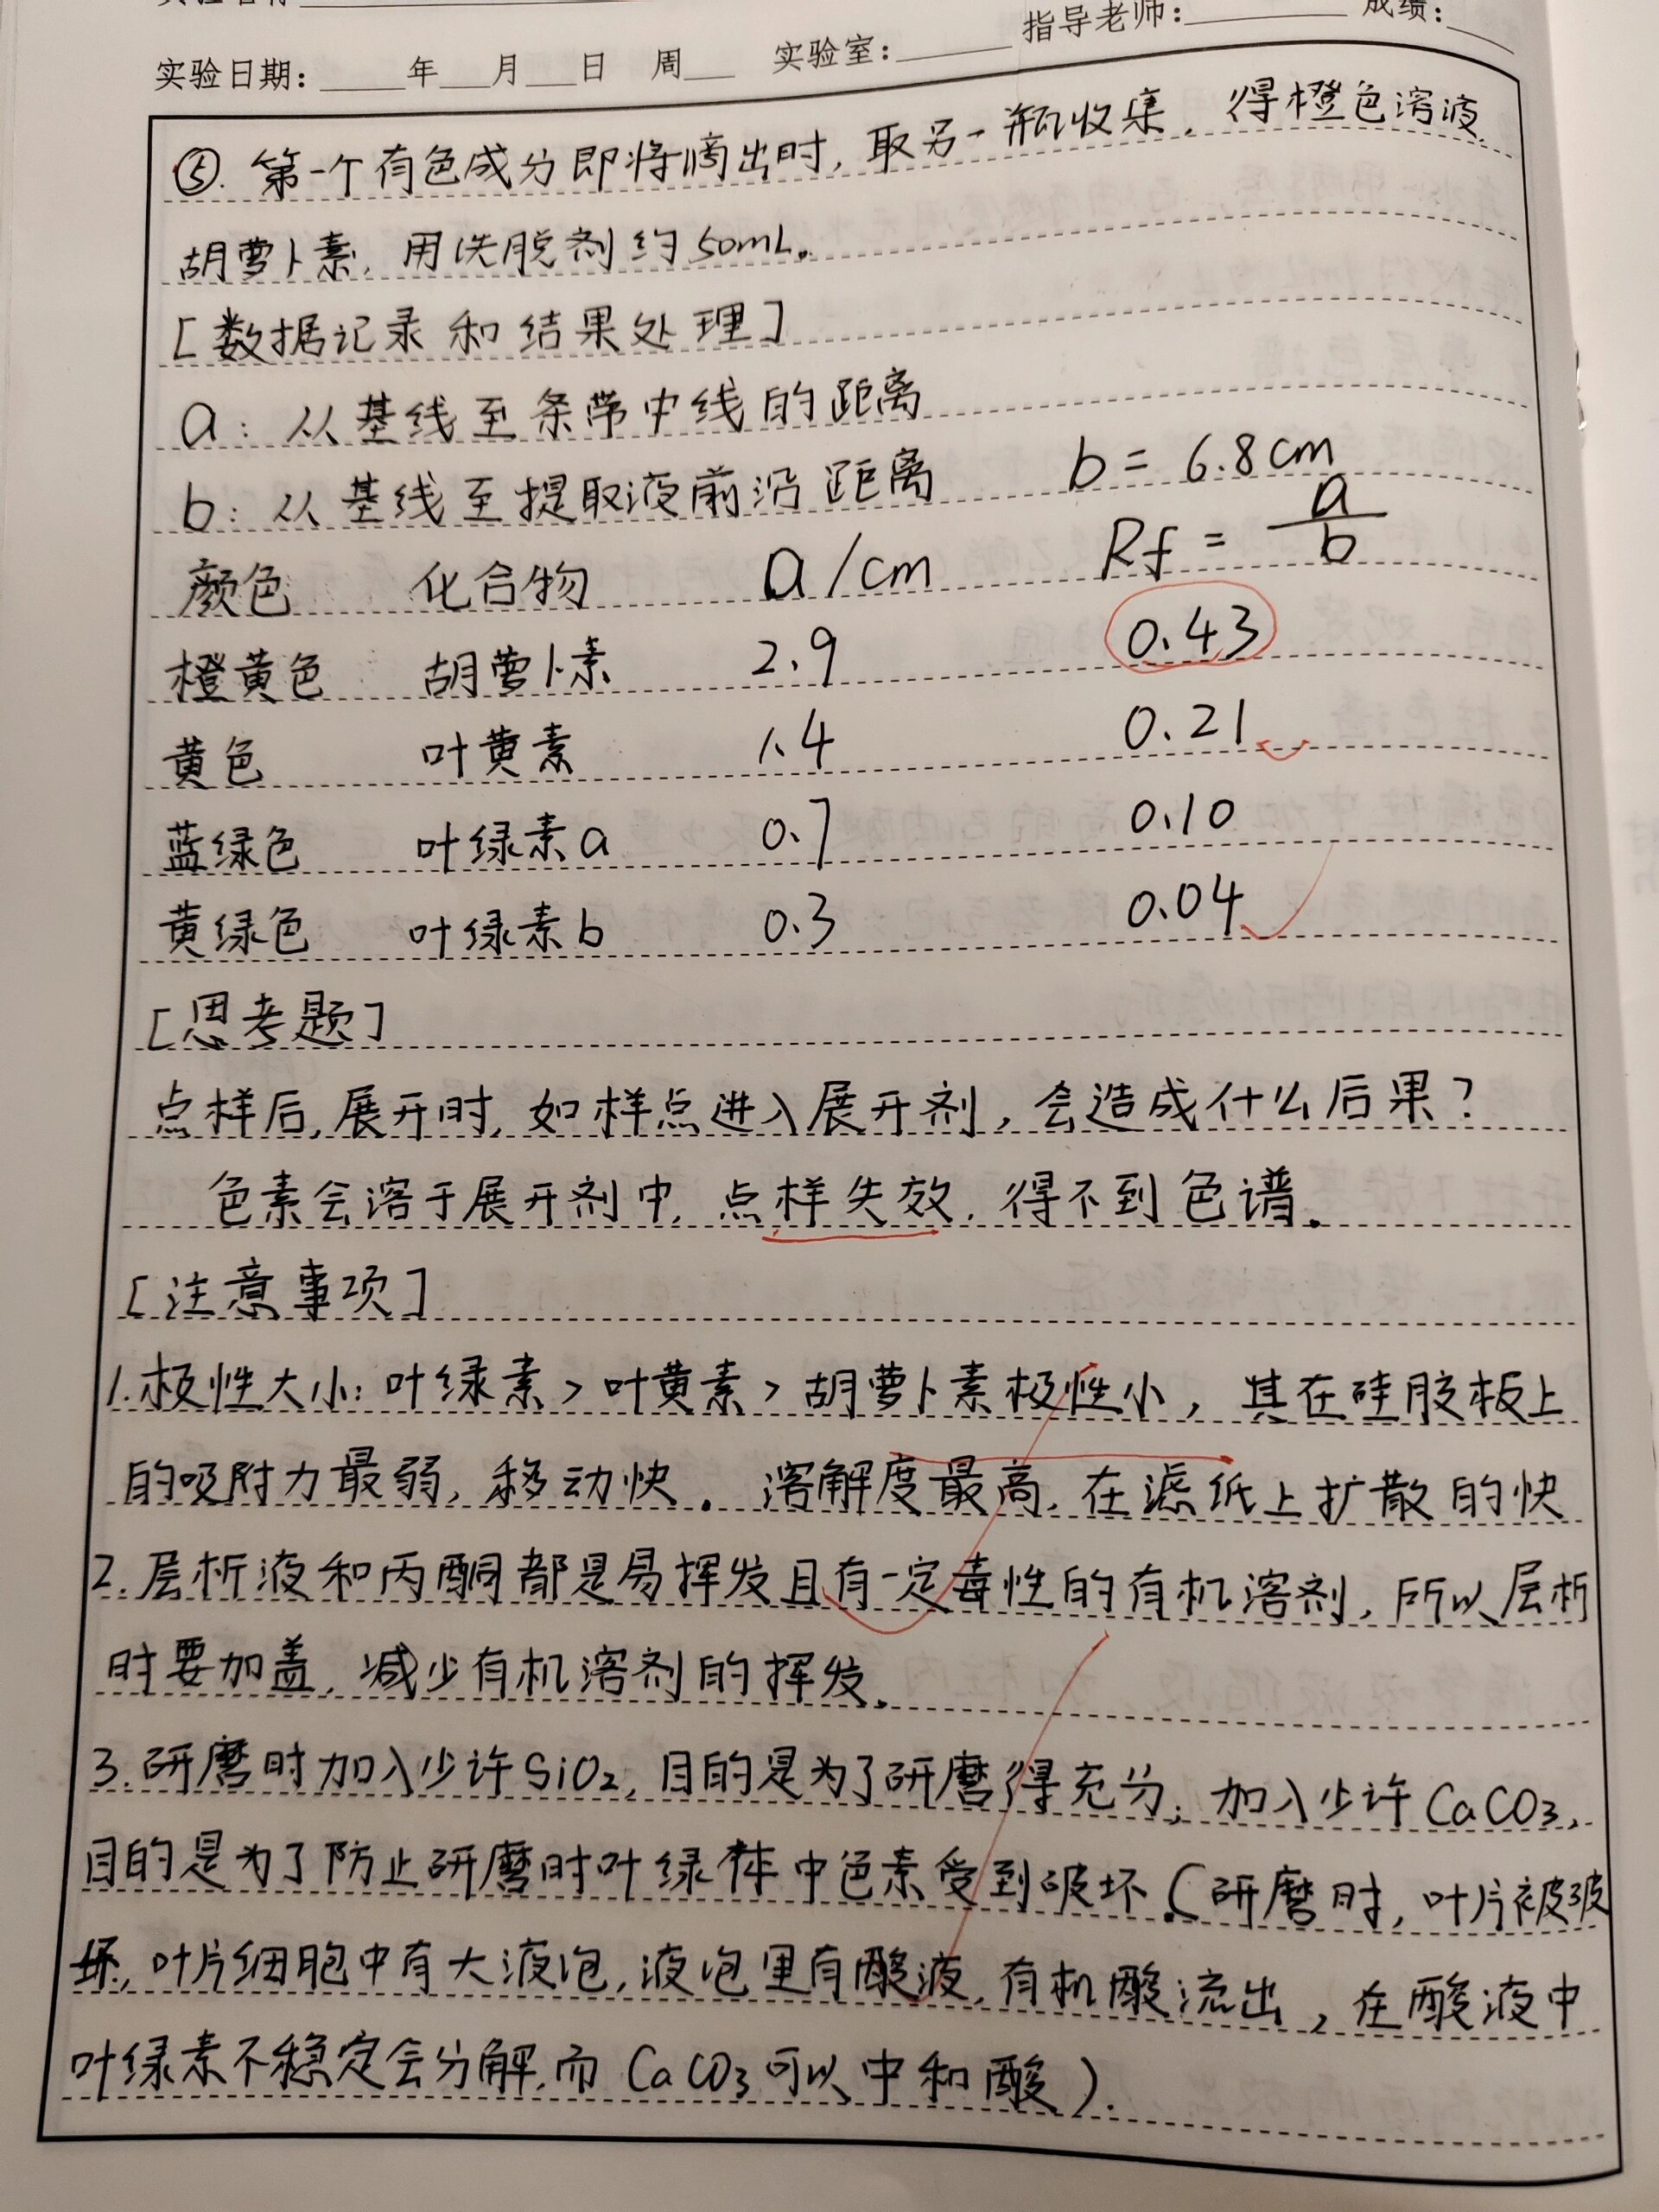 指导老师:________ 成绩:____
实验日期:____年__月__日 周__ 实验室:______
⑤. 第一个有色成分即将滴出时, 取另一瓶收集, 得橙色溶液
胡萝卜素, 用洗脱剂约50mL。
[数据记录和结果处理]
a: 从基线至条带中线的距离
b: 从基线至提取液前沿距离 b = 6.8cm
颜色 化合物 a/cm Rf = a/b
橙黄色 胡萝卜素 2.9 0.43
黄色 叶黄素 1.4 0.21
蓝绿色 叶绿素a 0.7 0.10
黄绿色 叶绿素b 0.3 0.04
[思考题]
点样后, 展开时, 如样点进入展开剂, 会造成什么后果?
色素会溶于展开剂中, 点样失效, 得不到色谱。
[注意事项]
1.极性大小: 叶绿素>叶黄素>胡萝卜素极性小, 其在硅胶板上
的吸附力最弱, 移动快. 溶解度最高, 在滤纸上扩散的快
2.层析液和丙酮都是易挥发且有一定毒性的有机溶剂, 所以层析
时要加盖, 减少有机溶剂的挥发.
3.研磨时加入少许SiO₂, 目的是为了研磨得充分; 加入少许CaCO₃,
目的是为了防止研磨时叶绿体中色素受到破坏.(研磨时, 叶片被破
坏, 叶片细胞中有大液泡, 液泡里有酸液, 有机酸流出, 在酸液中
叶绿素不稳定会分解,而CaCO₃可以中和酸).